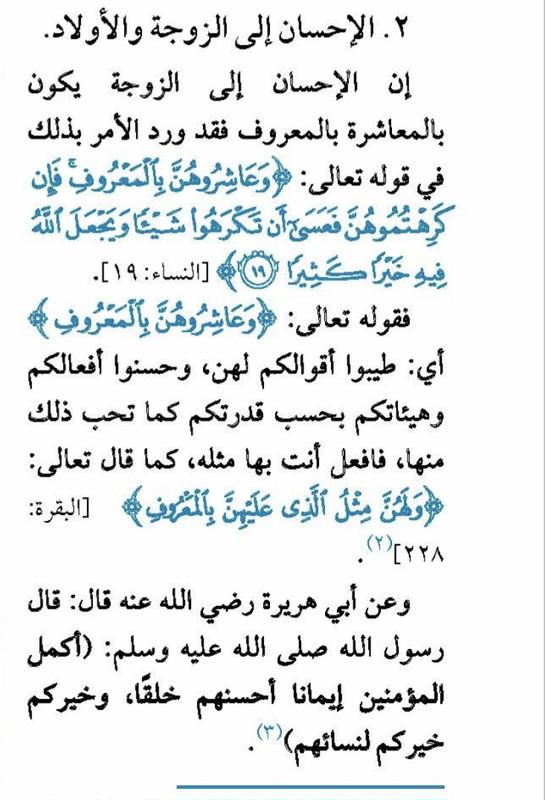 ٢. الإحسان إلى الزوجة والأولاد.
إن الإحسان إلى الزوجة يكون
بالمعاشرة بالمعروف فقد ورد الأمر بذلك
في قوله تعالى: ﴿وَعَاشِرُوهُنَّ بِالْمَعْرُوفِ ۚ فَإِن
كَرِهْتُمُوهُنَّ فَعَسَىٰٓ أَن تَكْرَهُوا۟ شَيْـًٔا وَيَجْعَلَ ٱللَّهُ
فِيهِ خَيْرًا كَثِيرًا ١٩﴾ [النساء: ١٩].
فقوله تعالى: ﴿وَعَاشِرُوهُنَّ بِالْمَعْرُوفِ﴾
أي: طيبوا أقوالكم لهن، وحسنوا أفعالكم
وهيئاتكم بحسب قدرتكم كما تحب ذلك
منها، فافعل أنت بها مثله، كما قال تعالى:
﴿وَلَهُنَّ مِثْلُ ٱلَّذِى عَلَيْهِنَّ بِٱلْمَعْرُوفِ﴾ [البقرة:
٢٢٨](٢).
وعن أبي هريرة رضي الله عنه قال: قال
رسول الله صلى الله عليه وسلم: (أكمل
المؤمنين إيمانا أحسنهم خلقًا، وخيركم
خيركم لنسائهم)(٣).